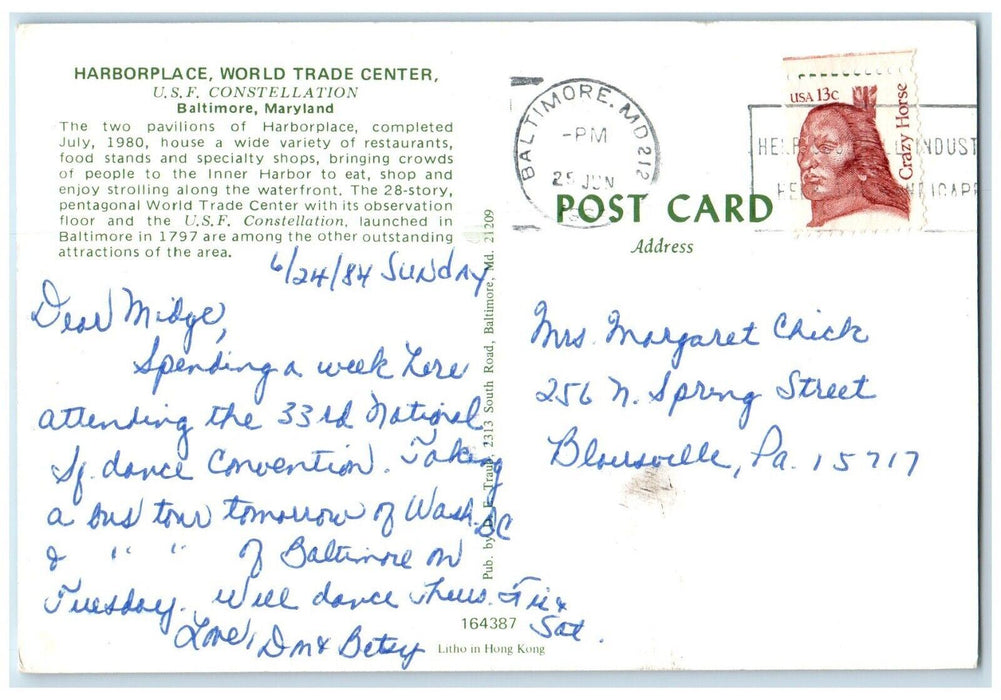 HARBORPLACE, WORLD TRADE CENTER,
U.S.F. CONSTELLATION
Baltimore, Maryland
The two pavilions of Harborplace, completed
July, 1980, house a wide variety of restaurants,
food stands and specialty shops, bringing crowds
of people to the Inner Harbor to eat, shop and
enjoy strolling along the waterfront. The 28-story,
pentagonal World Trade Center with its observation
floor and the U.S.F. Constellation, launched in
Baltimore in 1797 are among the other outstanding
attractions of the area.
6/24/84 Sunday
Dear Midge,
Spending a week here
attending the 33rd National
Sq. dance Convention. Taking
a bus tour tomorrow of Wash. DC
& " " of Baltimore on
Tuesday. Will dance Thurs. Fri &
Sat.
Love, Don & Betsy
164387
Litho in Hong Kong
Pub. by D. E. Traub, 2313 South Road, Baltimore, Md. 21209
BALTIMORE, MD 212
-PM
25 JUN
USA 13c
Crazy Horse
HEL INDUST
HE DICAPP
POST CARD
Address
Mrs. Margaret Chick
256 N. Spring Street
Blairsville, Pa. 15717